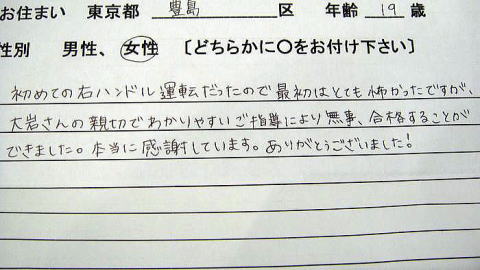 お住まい 東京都 豊島 区 年齢 19 歳
性別 男性、女性 〔どちらかに〇をお付け下さい〕
初めての右ハンドル運転だったので最初はとても怖かったですが、
大岩さんの親切でわかりやすいご指導により無事、合格することが
できました。本当に感謝しています。ありがとうございました!